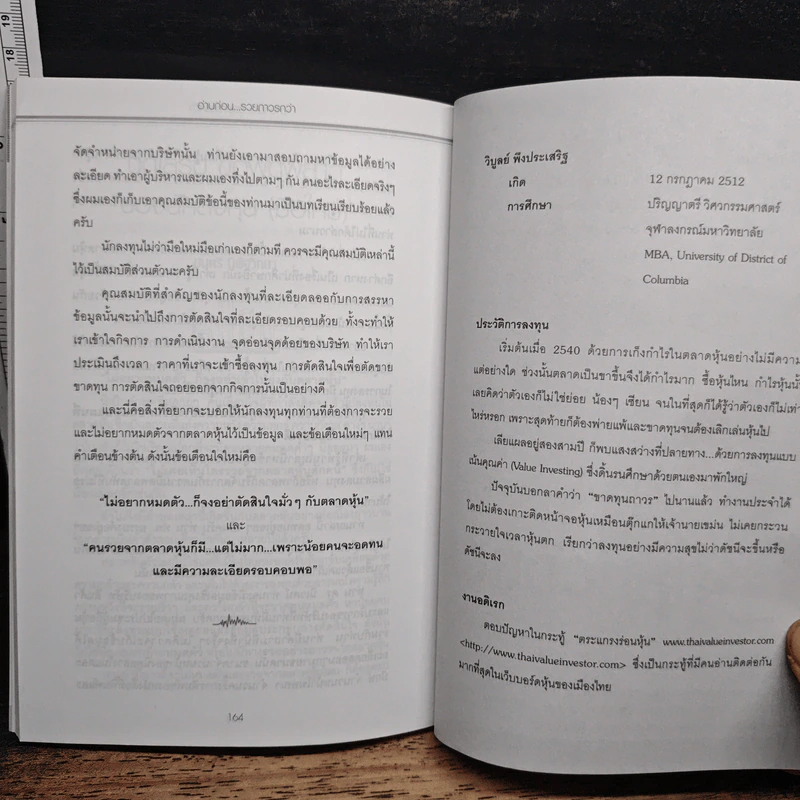 19
18
อ่านก่อน...รวยถาวรกว่า
จัดจำหน่ายจากบริษัทนั้น ท่านยังเอามาสอบถามหาข้อมูลได้อย่าง
ละเอียด ทำเอาผู้บริหารและผมเองทึ่งไปตามๆ กัน คนอะไรละเอียดจริงๆ
ซึ่งผมเองก็เก็บเอาคุณสมบัติข้อนี้ของท่านมาเป็นบทเรียนเรียบร้อยแล้ว
ครับ
นักลงทุนไม่ว่ามือใหม่มือเก่าเองก็ตามที ควรจะมีคุณสมบัติเหล่านี้
ไว้เป็นสมบัติส่วนตัวนะครับ
คุณสมบัติที่สำคัญของนักลงทุนที่ละเอียดลออกับการสรรหา
ข้อมูลนั้นจะนำไปถึงการตัดสินใจที่ละเอียดรอบคอบด้วย ทั้งจะทำให้
เราเข้าใจกิจการ การดำเนินงาน จุดอ่อนจุดด้อยของบริษัท ทำให้เรา
ประเมินถึงเวลา ราคาที่เราจะเข้าซื้อลงทุน การตัดสินใจเพื่อตัดขาย
ขาดทุน การตัดสินใจถอยออกจากกิจการนั้นเป็นอย่างดี
และนี่คือสิ่งที่อยากจะบอกให้นักลงทุนทุกท่านที่ต้องการจะรวย
และไม่อยากหมดตัวจากตลาดหุ้นไว้เป็นข้อมูล และข้อเตือนใหม่ๆ แทน
คำเตือนข้างต้น ดังนั้นข้อเตือนใจใหม่คือ
"ไม่อยากหมดตัว...ก็จงอย่าตัดสินใจมั่วๆ กับตลาดหุ้น"
และ
"คนรวยจากตลาดหุ้นก็มี...แต่ไม่มาก...เพราะน้อยคนจะอดทน
และมีความละเอียดรอบคอบพอ"
164
วิบูลย์ พึงประเสริฐ
เกิด 12 กรกฎาคม 2512
การศึกษา ปริญญาตรี วิศวกรรมศาสตร์
จุฬาลงกรณ์มหาวิทยาลัย
MBA, University of District of
Columbia
ประวัติการลงทุน
เริ่มต้นเมื่อ 2540 ด้วยการเก็งกำไรในตลาดหุ้นอย่างไม่มีความ
แต่อย่างใด ช่วงนั้นตลาดเป็นขาขึ้นจึงได้กำไรมาก ซื้อหุ้นไหน กำไรหุ้นนั้
เลยคิดว่าตัวเองก็ไม่ใช่ย่อย น้องๆ เซียน จนในที่สุดก็ได้รู้ว่าตัวเองก็ไม่เท่า
ไหร่หรอก เพราะสุดท้ายก็ต้องพ่ายแพ้และขาดทุนจนต้องเลิกเล่นหุ้นไป
เลียแผลอยู่สองสามปี ก็พบแสงสว่างที่ปลายทาง...ด้วยการลงทุนแบบ
เน้นคุณค่า (Value Investing) ซึ่งดิ้นรนศึกษาด้วยตนเองมาพักใหญ่
ปัจจุบันบอกลาคำว่า "ขาดทุนถาวร" ไปนานแล้ว ทำงานประจำได้
โดยไม่ต้องเกาะติดหน้าจอหุ้นเหมือนตุ๊กแกให้เจ้านายเขม่น ไม่เคยกระวน
กระวายใจเวลาหุ้นตก เรียกว่าลงทุนอย่างมีความสุขไม่ว่าดัชนีจะขึ้นหรือ
ดัชนีจะลง
งานอดิเรก
ตอบปัญหาในกระทู้ "ตระแกรงร่อนหุ้น" www.thaivalueinvestor.com
<http://www.thaivalueinvestor.com> ซึ่งเป็นกระทู้ที่มีคนอ่านติดต่อกัน
มากที่สุดในเว็บบอร์ดหุ้นของเมืองไทย